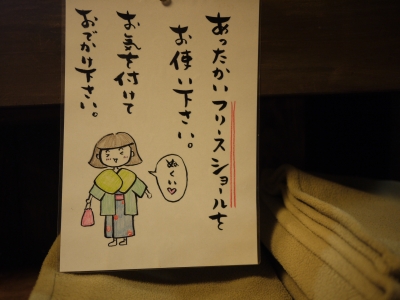 あったかいフリースショールを
お使い下さい。
お気を付けて
おでかけ下さい。
ぬくい♡